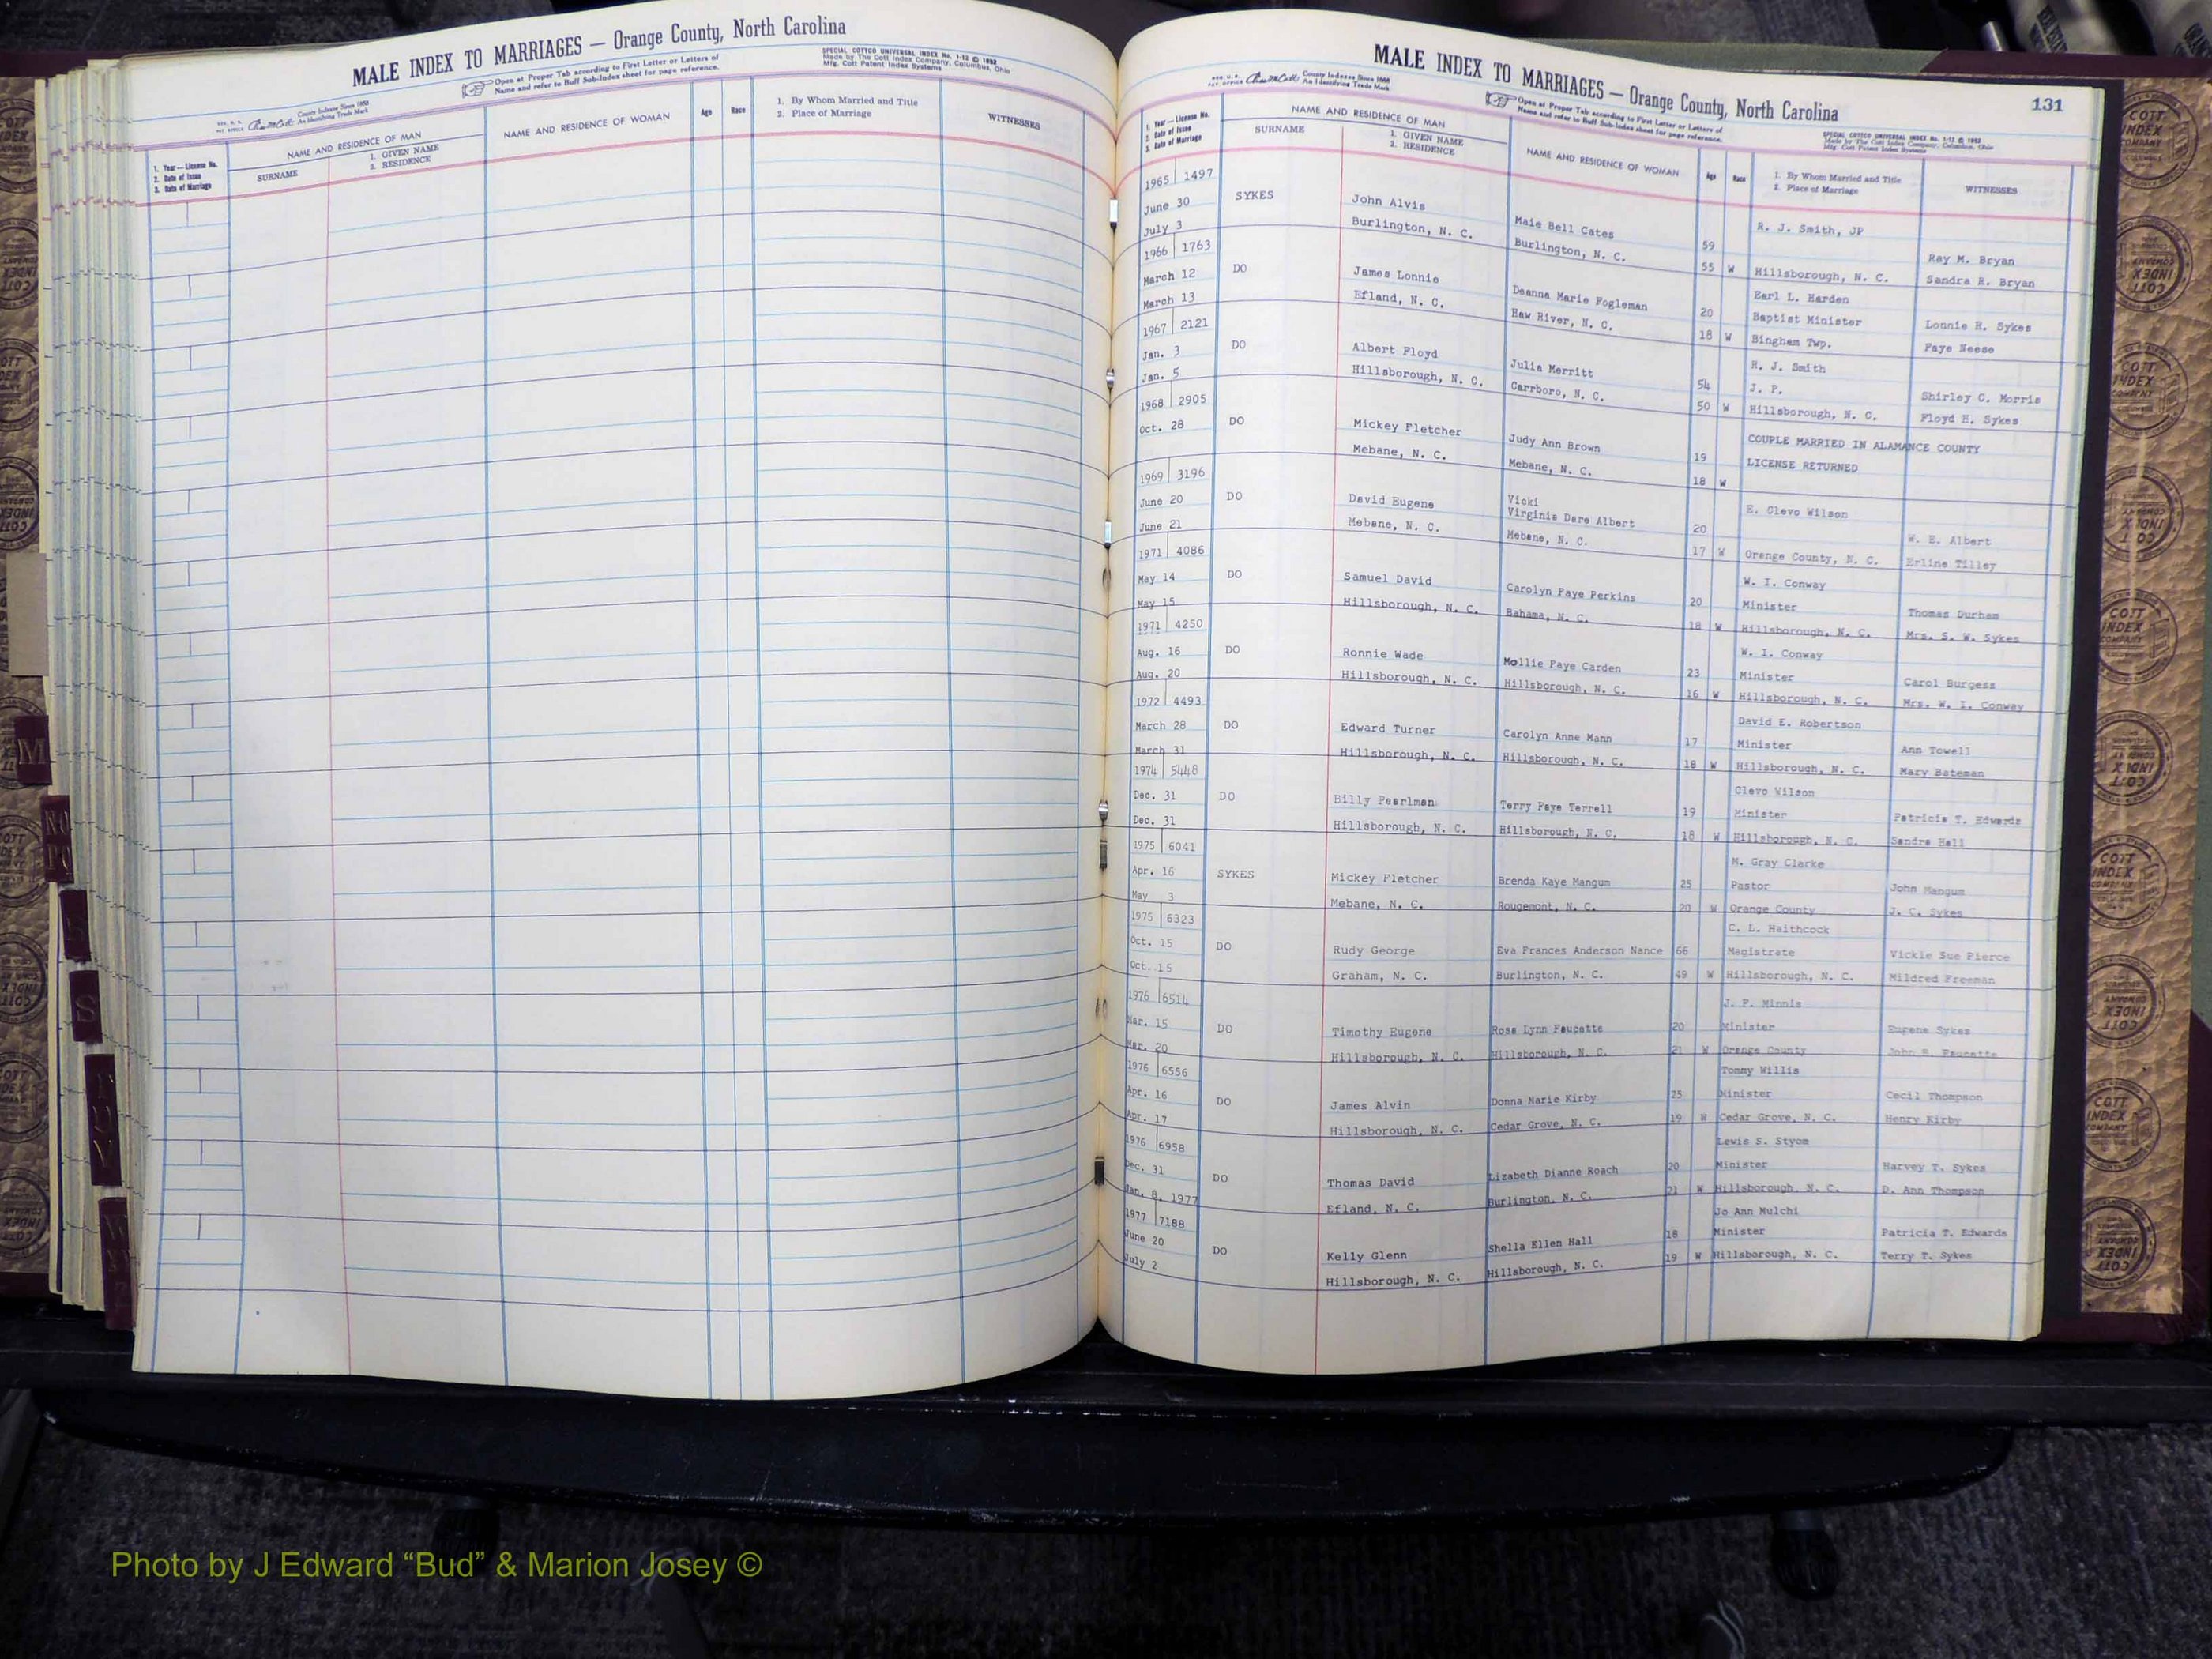 MALE INDEX TO MARRIAGES — Orange County, North Carolina
Open at Proper Tab according to First Letter or Letters of
Name and refer to Buff Sub-Index sheet for page reference.
SPECIAL COTTCO UNIVERSAL INDEX No. 1-12 © 1952
Made by The Cott Index Company, Columbus, Ohio
Mfg. Cott Patent Index Systems
County Indexes Since 1888
An Identifying Trade Mark
1. Year — License No.
2. Date of Issue
3. Date of Marriage
NAME AND RESIDENCE OF MAN
SURNAME
1. GIVEN NAME
2. RESIDENCE
NAME AND RESIDENCE OF WOMAN
Age
Race
1. By Whom Married and Title
2. Place of Marriage
WITNESSES
MALE INDEX TO MARRIAGES — Orange County, North Carolina
131
County Indexes Since 1888
An Identifying Trade Mark
Open at Proper Tab according to First Letter or Letters of
Name and refer to Buff Sub-Index sheet for page reference.
SPECIAL COTTCO UNIVERSAL INDEX No. 1-12 © 1952
Made by The Cott Index Company, Columbus, Ohio
Mfg. Cott Patent Index Systems
1. Year — License No.
2. Date of Issue
3. Date of Marriage
NAME AND RESIDENCE OF MAN
SURNAME
1. GIVEN NAME
2. RESIDENCE
NAME AND RESIDENCE OF WOMAN
Age
Race
1. By Whom Married and Title
2. Place of Marriage
WITNESSES
1965 1497
June 30 SYKES John Alvis Maie Bell Cates 59 R. J. Smith, JP Ray M. Bryan
July 3 Burlington, N. C. Burlington, N. C. 55 W Hillsborough, N. C. Sandra R. Bryan
1966 1763 Earl L. Harden
March 12 DO James Lonnie Deanna Marie Fogleman 20 Baptist Minister Lonnie R. Sykes
March 13 Efland, N. C. Haw River, N. C. 18 W Bingham Twp. Faye Neese
1967 2121 R. J. Smith
Jan. 3 DO Albert Floyd Julia Merritt 54 J. P. Shirley C. Morris
Jan. 5 Hillsborough, N. C. Carrboro, N. C. 50 W Hillsborough, N. C. Floyd H. Sykes
1968 2905 COUPLE MARRIED IN ALAMANCE COUNTY
Oct. 28 DO Mickey Fletcher Judy Ann Brown 19 LICENSE RETURNED
Mebane, N. C. Mebane, N. C. 18 W
1969 3196 Vicki E. Clevo Wilson
June 20 DO David Eugene Virginia Dare Albert 20 W. E. Albert
June 21 Mebane, N. C. Mebane, N. C. 17 W Orange County, N. C. Erline Tilley
1971 4086 W. I. Conway
May 14 DO Samuel David Carolyn Faye Perkins 20 Minister Thomas Durham
May 15 Hillsborough, N. C. Bahama, N. C. 18 W Hillsborough, N. C. Mrs. S. W. Sykes
1971 4250 W. I. Conway
Aug. 16 DO Ronnie Wade Mollie Faye Carden 23 Minister Carol Burgess
Aug. 20 Hillsborough, N. C. Hillsborough, N. C. 16 W Hillsborough, N. C. Mrs. W. I. Conway
1972 4493 David E. Robertson
March 28 DO Edward Turner Carolyn Anne Mann 17 Minister Ann Towell
March 31 Hillsborough, N. C. Hillsborough, N. C. 18 W Hillsborough, N. C. Mary Bateman
1974 5448 Clevo Wilson
Dec. 31 DO Billy Pearlman Terry Faye Terrell 19 Minister Patricia T. Edwards
Dec. 31 Hillsborough, N. C. Hillsborough, N. C. 18 W Hillsborough, N. C. Sandra Hall
1975 6041 M. Gray Clarke
Apr. 16 SYKES Mickey Fletcher Brenda Kaye Mangum 25 Pastor John Mangum
May 3 Mebane, N. C. Rougemont, N. C. 20 W Orange County J. C. Sykes
1975 6323 C. L. Haithcock
Oct. 15 DO Rudy George Eva Frances Anderson Nance 66 Magistrate Vickie Sue Pierce
Oct. 15 Graham, N. C. Burlington, N. C. 49 W Hillsborough, N. C. Mildred Freeman
1976 6514 J. P. Minnis
Mar. 15 DO Timothy Eugene Rose Lynn Faucette 20 Minister Eugene Sykes
Mar. 20 Hillsborough, N. C. Hillsborough, N. C. 21 W Orange County John Faucette
1976 6556 Tommy Willis
Apr. 16 DO James Alvin Donna Marie Kirby 25 Minister Cecil Thompson
Apr. 17 Hillsborough, N. C. Cedar Grove, N. C. 19 W Cedar Grove, N. C. Henry Kirby
1976 6958 Lewis S. Styom
Dec. 31 DO Thomas David Lizabeth Dianne Roach 20 Minister Harvey T. Sykes
Jan. 8, 1977 Efland, N. C. Burlington, N. C. 21 W Hillsborough, N. C. D. Ann Thompson
1977 7188 Jo Ann Mulchi
June 20 DO Kelly Glenn Shella Ellen Hall 18 Minister Patricia T. Edwards
July 2 Hillsborough, N. C. Hillsborough, N. C. 19 W Hillsborough, N. C. Terry T. Sykes
M
S
Photo by J Edward “Bud” & Marion Josey ©